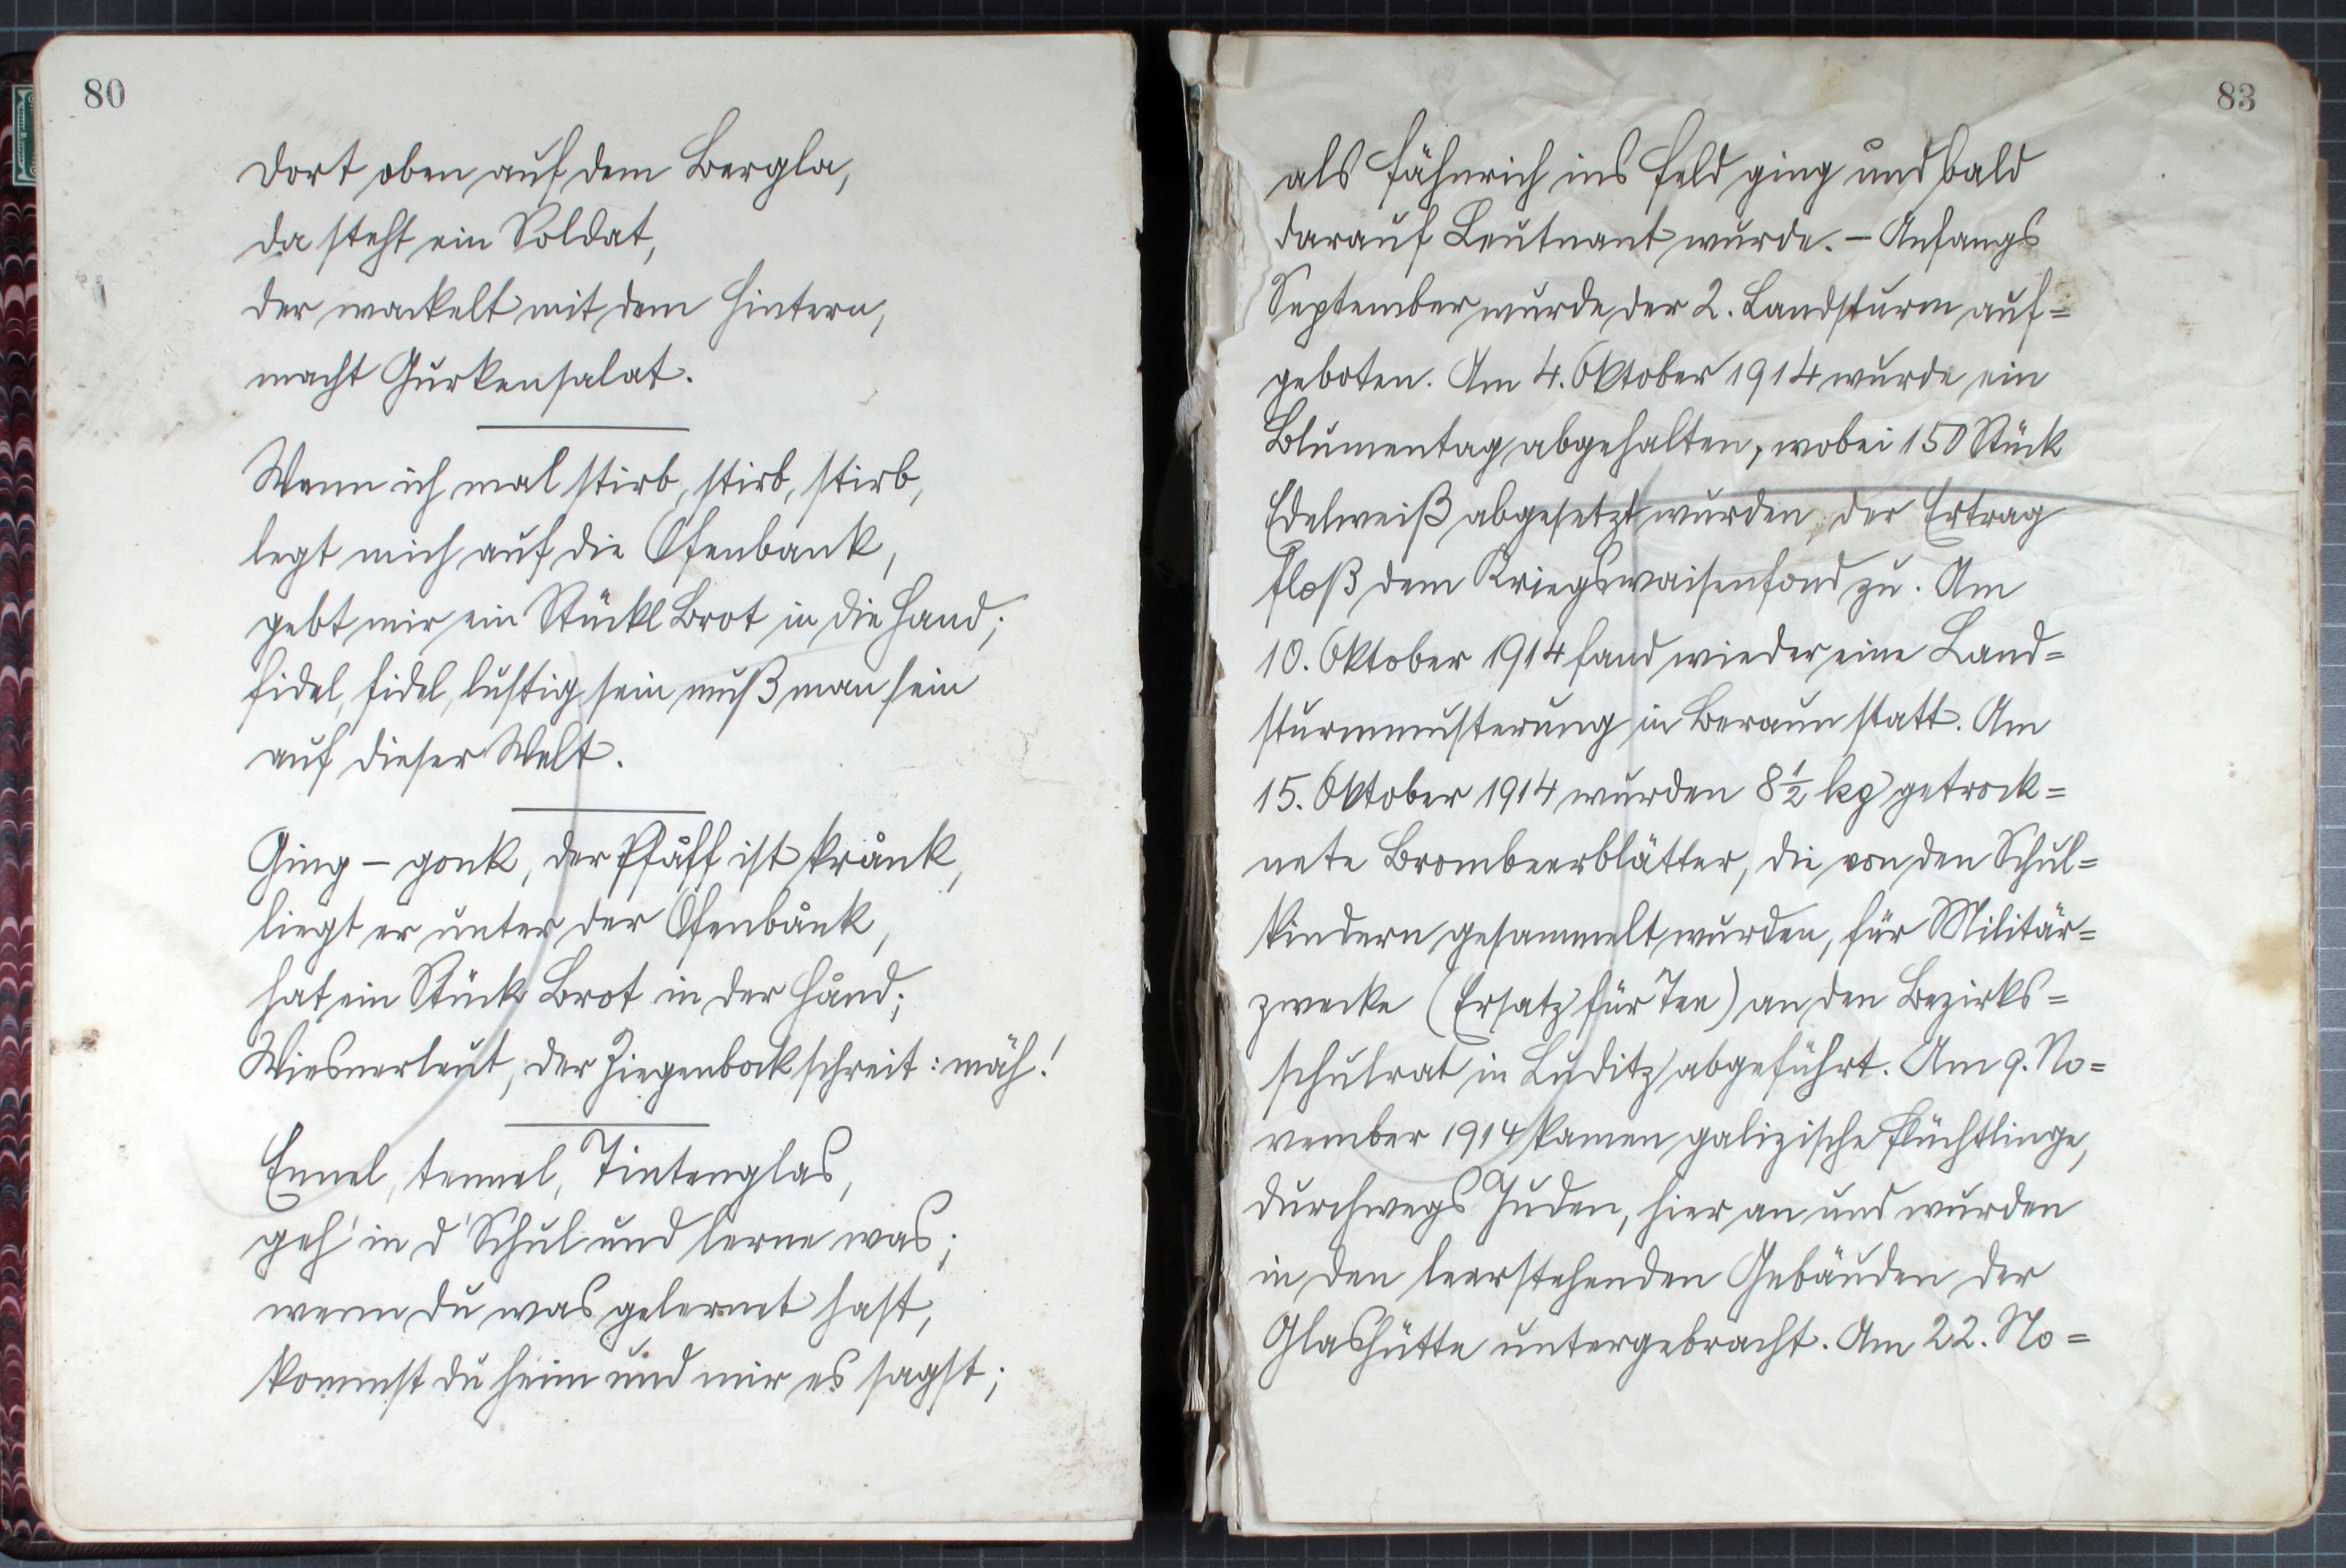 80
Dort oben auf dem Bergla,
da steht ein Soldat,
der wackelt mit dem Hintern,
macht Gurkensalat.
Wenn ich mal stirb, stirb, stirb,
legt mich auf die Ofenbank,
gebt mir ein Stückl Brot in die Hand;
fidel, fidel, lustig sein muß man sein
auf dieser Welt.
Ging – gonk, der Pfåff ist krånk,
liegt er unter der Ofenbånk,
hat ein Stück Brot in der Hånd;
Wiesnerleut, der Ziegenbock schreit: mäh!
Ennel, tennel, Tintenglas,
geh' in d' Schul und lerne was;
wenn du was gelernet hast,
kommst du heim und mir es sagst;
83
als Fähnrich ins Feld ging und bald
darauf Leutnant wurde. – Anfangs
September wurde der 2. Landsturm auf=
geboten. Am 4. Oktober 1914 wurde ein
Blumentag abgehalten, wobei 150 Stück
Edelweiß abgesetzt wurden, der Ertrag
floß dem Kriegswaisenfond zu. Am
10. Oktober 1914 fand wieder eine Land=
sturmmusterung in Beraun statt. Am
15. Oktober 1914 wurden 8½ kg getrock=
nete Brombeerblätter, die von den Schul=
kindern gesammelt wurden, für Militär=
zwecke (Ersatz für Tee) an den Bezirks=
schulrat in Luditz abgeführt. Am 9. No=
vember 1914 kamen galizische Flüchtlinge,
durchwegs Juden, hier an und wurden
in den leerstehenden Gebäuden der
Glashütte untergebracht. Am 22. No=